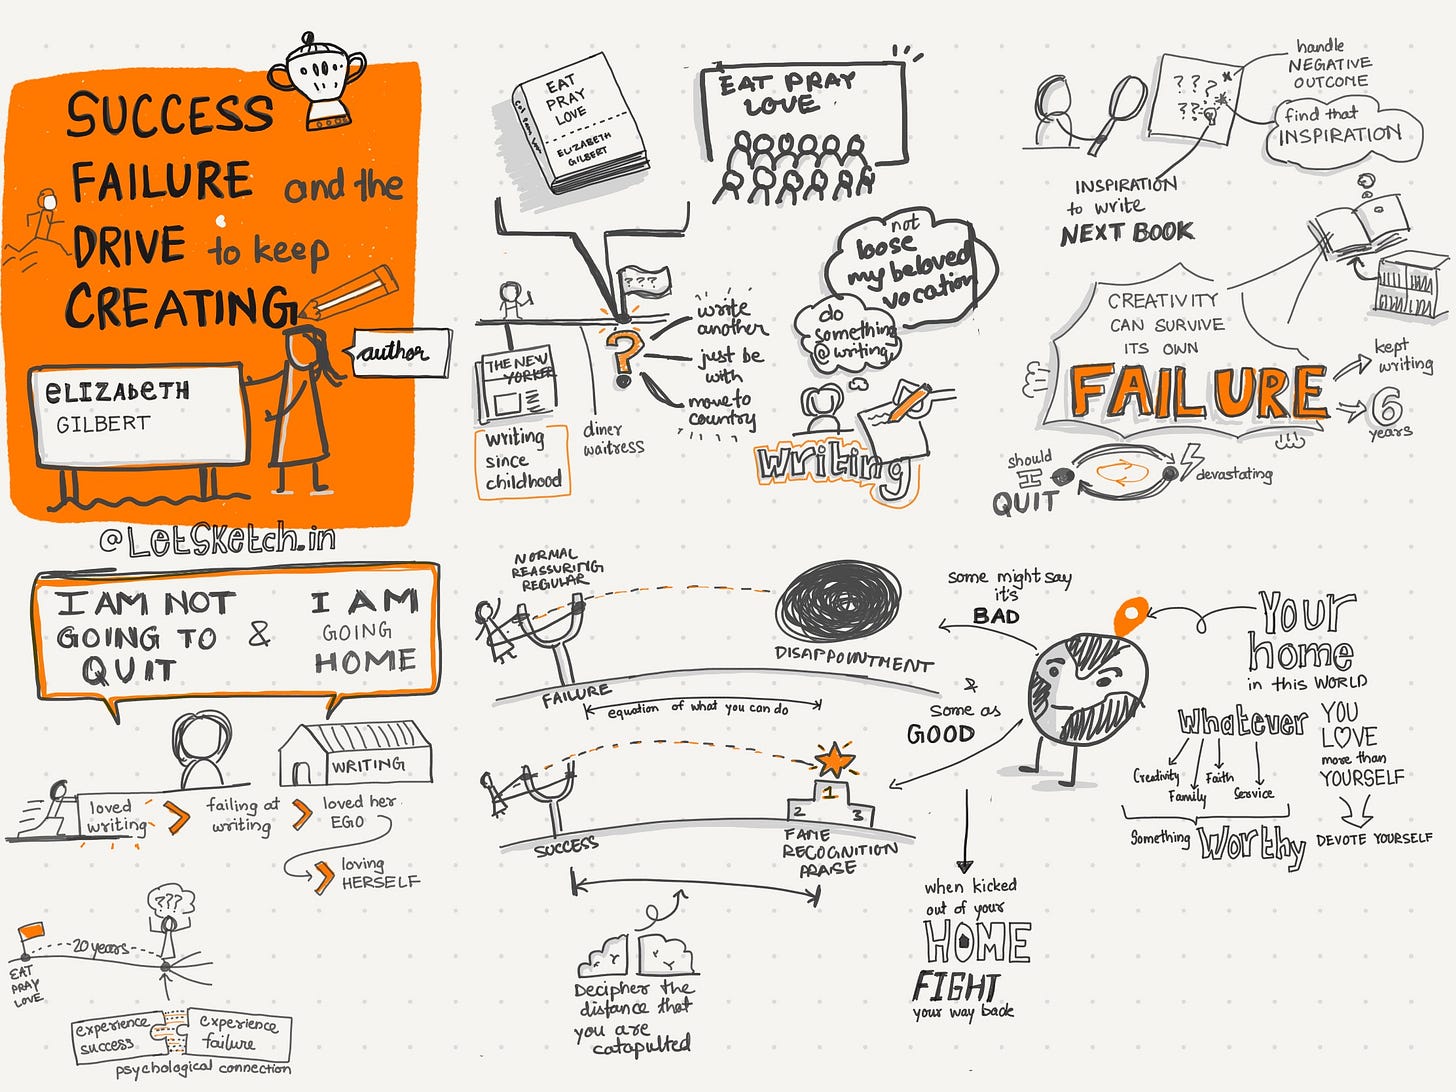 SUCCESS
FAILURE and the
DRIVE to keep
CREATING
author
eLIZAbETH
GILBERT
@LetSketch.in
EAT
PRAY
LOVE
ELIZABETH
GILBERT
EAT PRAY
LOVE
???
THE NEW
YORKER
writing
since
childhood
diner
waitress
?
write
another
just be
with
move to
country
not
loose
my beloved
vocation
do
something
@ writing
writing
handle
NEGATIVE
OUTCOME
? ? ?
? ?
find that
INSPIRATION
INSPIRATION
to write
NEXT BOOK
CREATIVITY
CAN SURVIVE
ITS OWN
FAILURE
kept
writing
6
years
should
I
QUIT
devastating
I AM NOT
GOING TO
QUIT
&
I AM
GOING
HOME
WRITING
loved
writing
failing at
writing
loved her
EGO
loving
HERSELF
???
20 years
EAT
PRAY
LOVE
experience
success
experience
failure
psychological connection
NORMAL
REASSURING
REGULAR
DISAPPOINTMENT
FAILURE
equation of what you can do
SUCCESS
1
2
3
FAME
RECOGNITION
PRAISE
Decipher the
distance that
you are
catapulted
some might say
it's
BAD
&
some as
GOOD
when kicked
out of your
HOME
FIGHT
your way back
Your
home
in this WORLD
Whatever
YOU
LOVE
more than
YOURSELF
Creativity
Family
Faith
Service
Something Worthy
DEVOTE YOURSELF